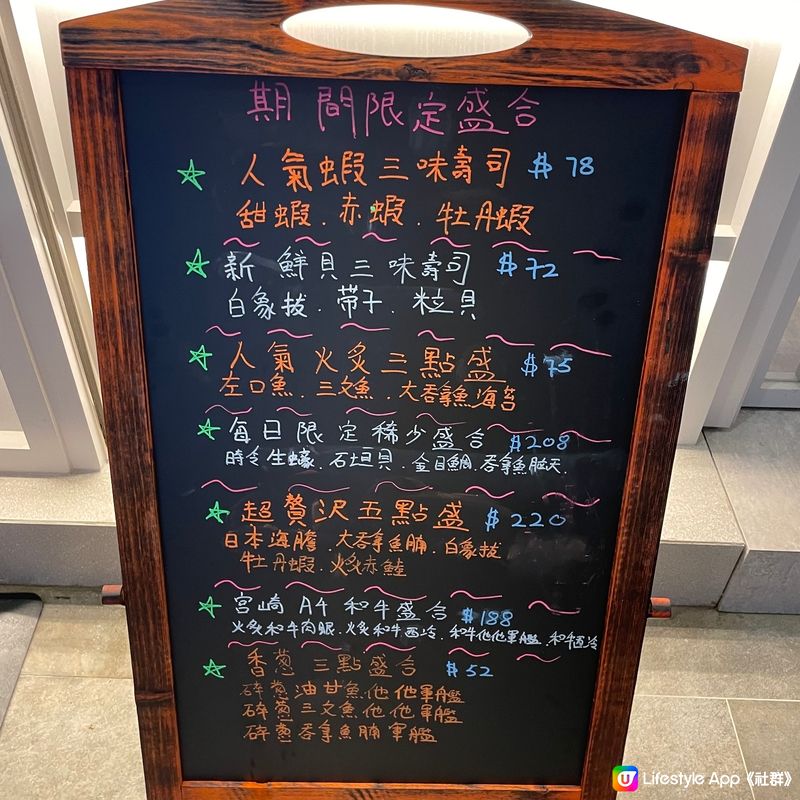 期間限定盛合
人氣蝦三味壽司 $78
甜蝦．赤蝦．牡丹蝦
新鮮貝三味壽司 $72
白象拔．帶子．粒貝
人氣火炙三點盛 $75
左口魚．三文魚．大吞拿魚海苔
每日限定稀少盛合 $208
時令生蠔．石垣貝．金目鯛．吞拿魚腦天．
超贅沢五點盛 $220
日本海膽．大吞拿魚腩．白象拔
牡丹蝦．火炙赤鯥
宮崎A4和牛盛合 $188
火炙和牛肉眼．火炙和牛西冷．和牛他他軍艦．和牛西冷
香蔥三點盛合 $52
碎蔥油甘魚他他軍艦
碎蔥三文魚他他軍艦
碎蔥吞拿魚腩軍艦
U Lifestyle App《社群》